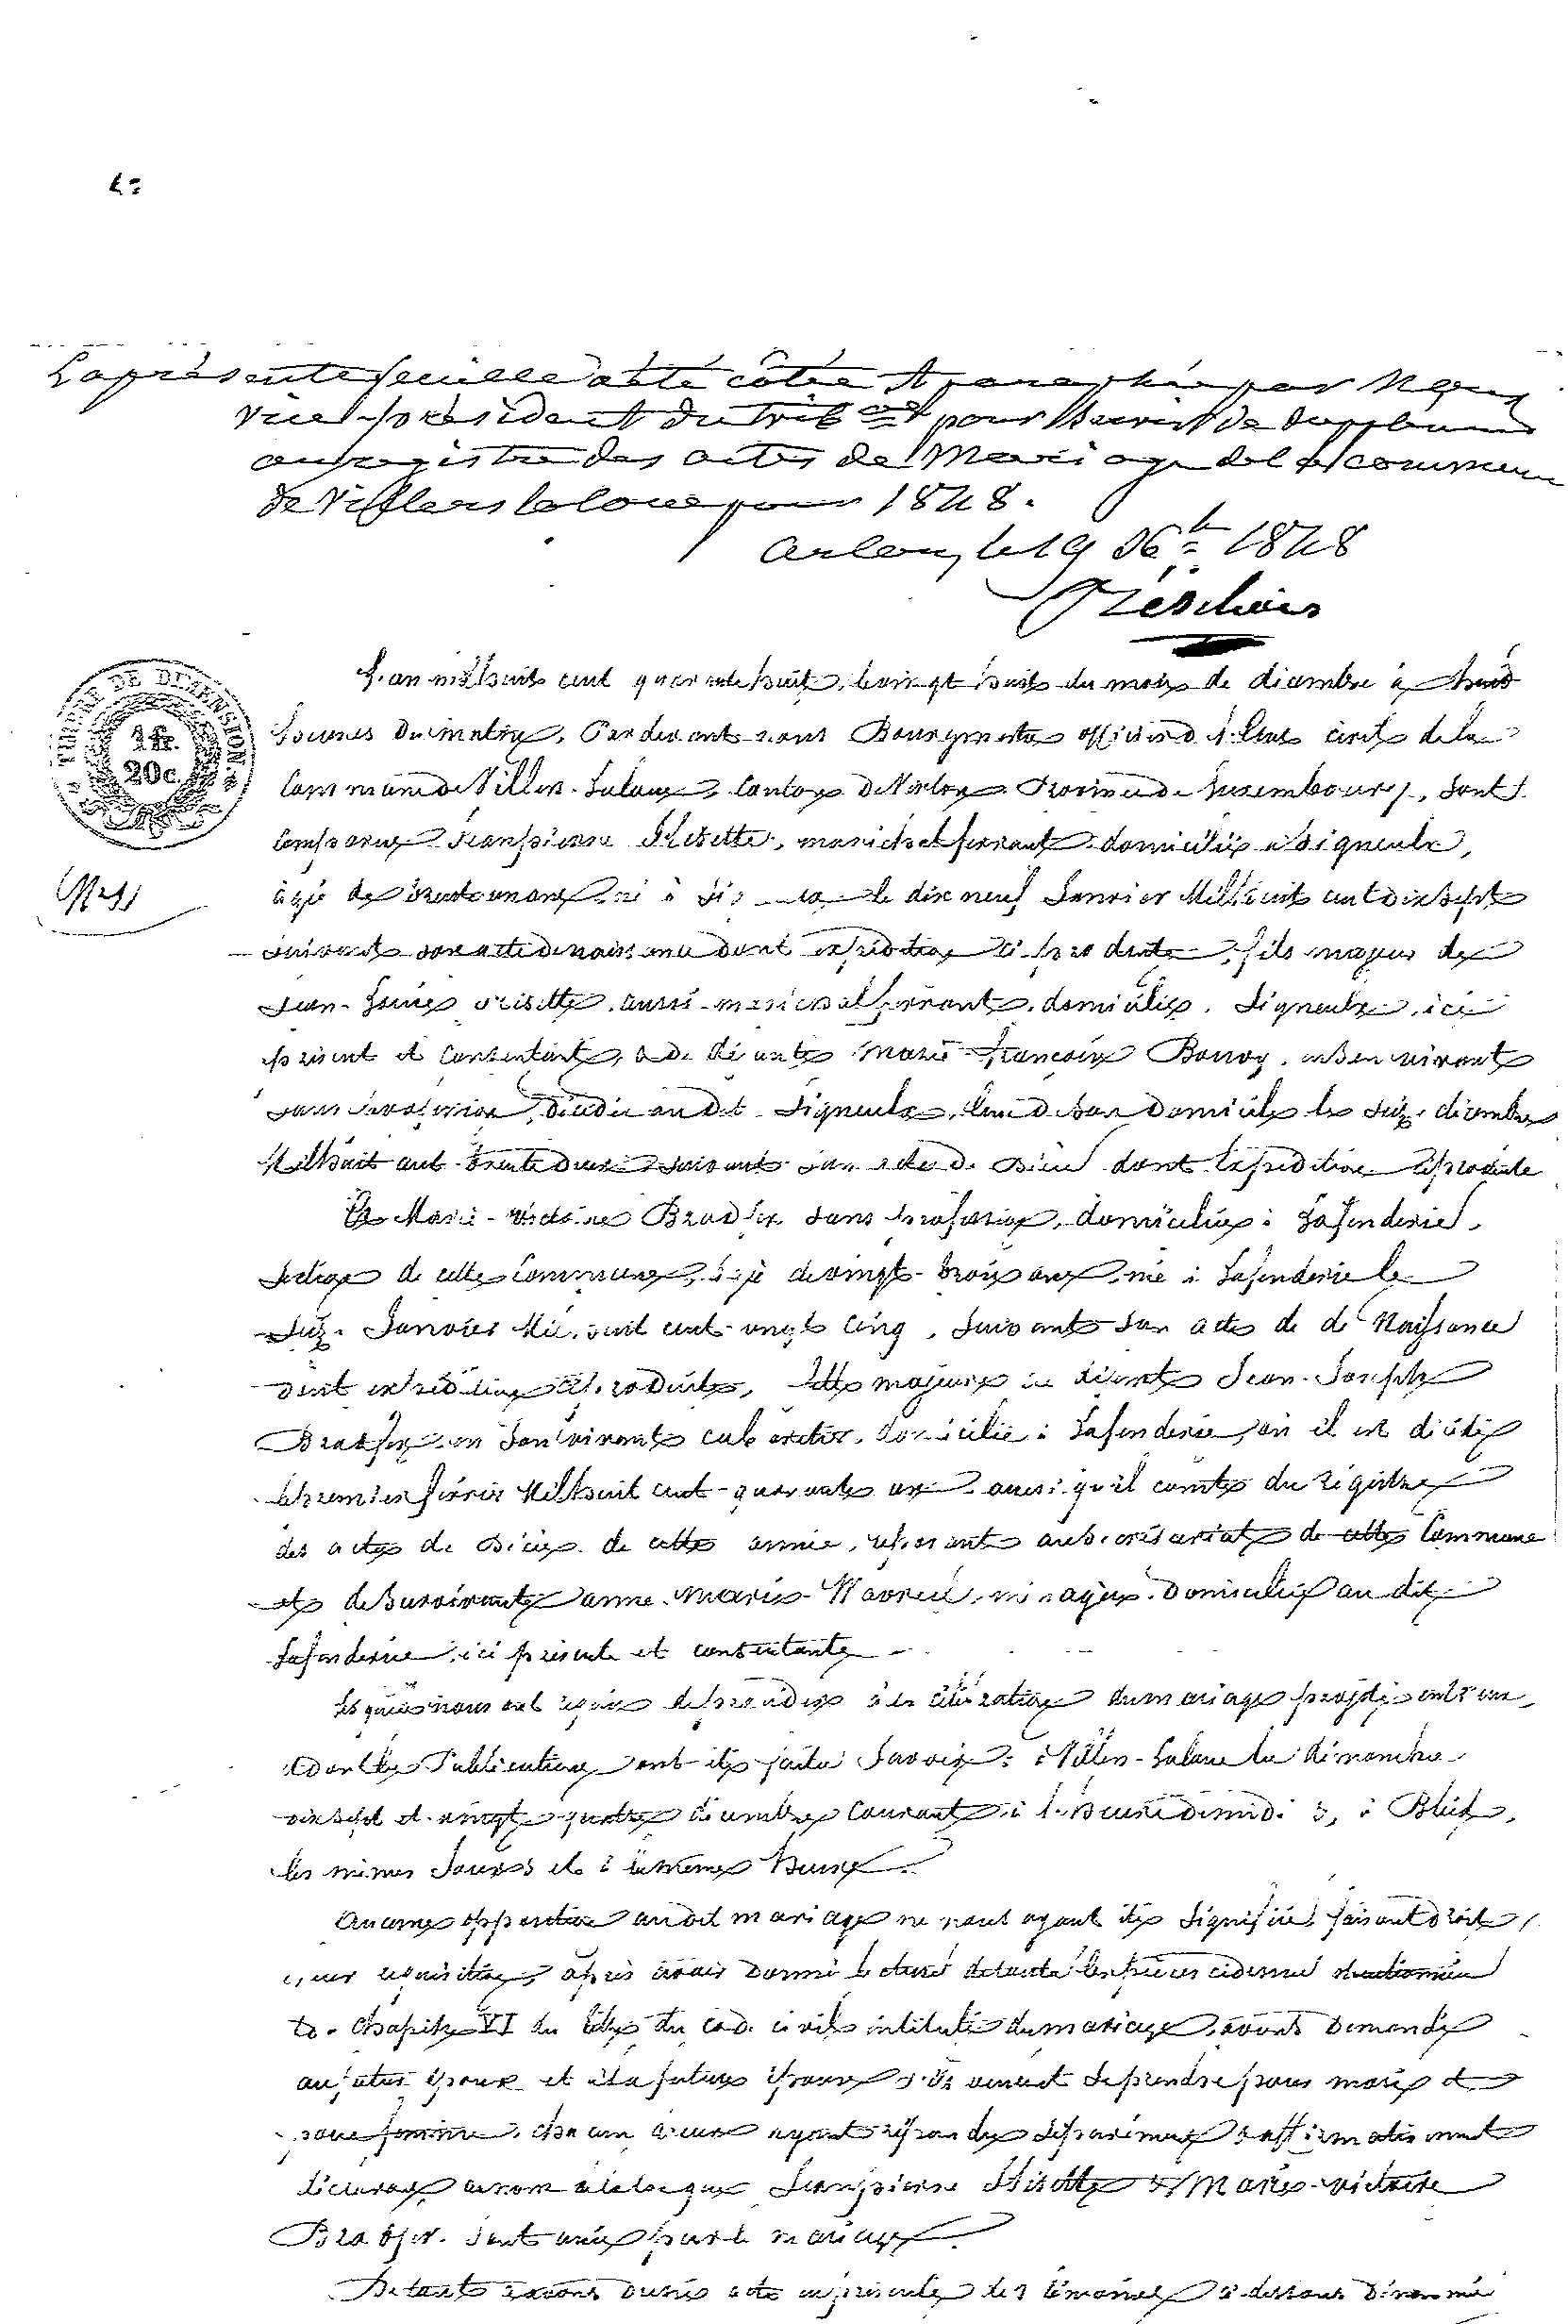 La présente feuille a été cotée et paraphée par Nous
vice-président du trib al pour servir de supplément
au registre des actes de Mariage de la commune
de Villers la loue pour 1848.
Arlon, le 19 Xbre 1848
TIMBRE DE DIMENSION.
1 fr.
20 c.
L'an mil huit cent quarante huit, le vingt huit du mois de décembre à
heures du matin, Pardevant nous Bourgmestre officier de l'état civil de la
Commune de Villers-Laloue, Canton de Virton Province de Luxembourg, sont
comparus Jean pierre marichal ferrant domicilié à Signeulx,
âgé de trente un ans, né à le dix neuf Janvier Mil huit cent dix sept
suivant son acte de naissance dont expédition ci produite, fils majeur de
Jean-Louis aussi marichal ferrant, domicilié Signeulx, ici
présent et consentant, et de défunte Marie françoise en son vivant
sans profession, décédée au dit Signeulx, lieu de son domicile le dix décembre
Mil huit cent trente deux suivant son acte de décès dont expédition ci produite
Et Marie-victoire sans profession, domiciliée à Lafenderie,
section de cette commune, âgée de vingt-trois ans, née à Lafenderie le
dix Janvier Mil huit cent vingt cinq, suivant son acte de de Naissance
dont expédition ci produite, fille majeure de défunt Jean-Joseph
en son vivant cabaretier, domicilié à Lafenderie, où il est décédé
le premier février Mil huit cent-quarante un ainsi qu'il conste du régistre
des actes de décès de cette année, reposant au secrétariat de cette Commune
et de survivante anne-marie ménagère domiciliée au dit
Lafenderie, ici présente et consentante
Lesquels nous ont requis de procéder à la célébration du mariage projeté entr'eux,
et dont les Publications ont été faites savoir: à Villers-Laloue les dimanches
dix sept et vingt-quatre décembre courant à l'heure de midi &, à Bleid,
les mêmes Jours et à la même heure.
Aucune opposition au dit mariage ne nous ayant été signifiée, faisant droit à
leur réquisition, après avoir donné lecture de toutes les pièces cidessus mentionnées
du chapitre VI du titre du code civil intitulé du mariage, avons demandé
au futur époux et à la future épouse s'ils veulent se prendre pour mari et
pour femme, chacun d'eux ayant répondu séparément & affirmativement
déclarons au nom de la loi que Jean pierre & Marie-victoire
sont unis par le mariage.
De tout ce avons dressé acte en présence des témoins ci dessous dénommés